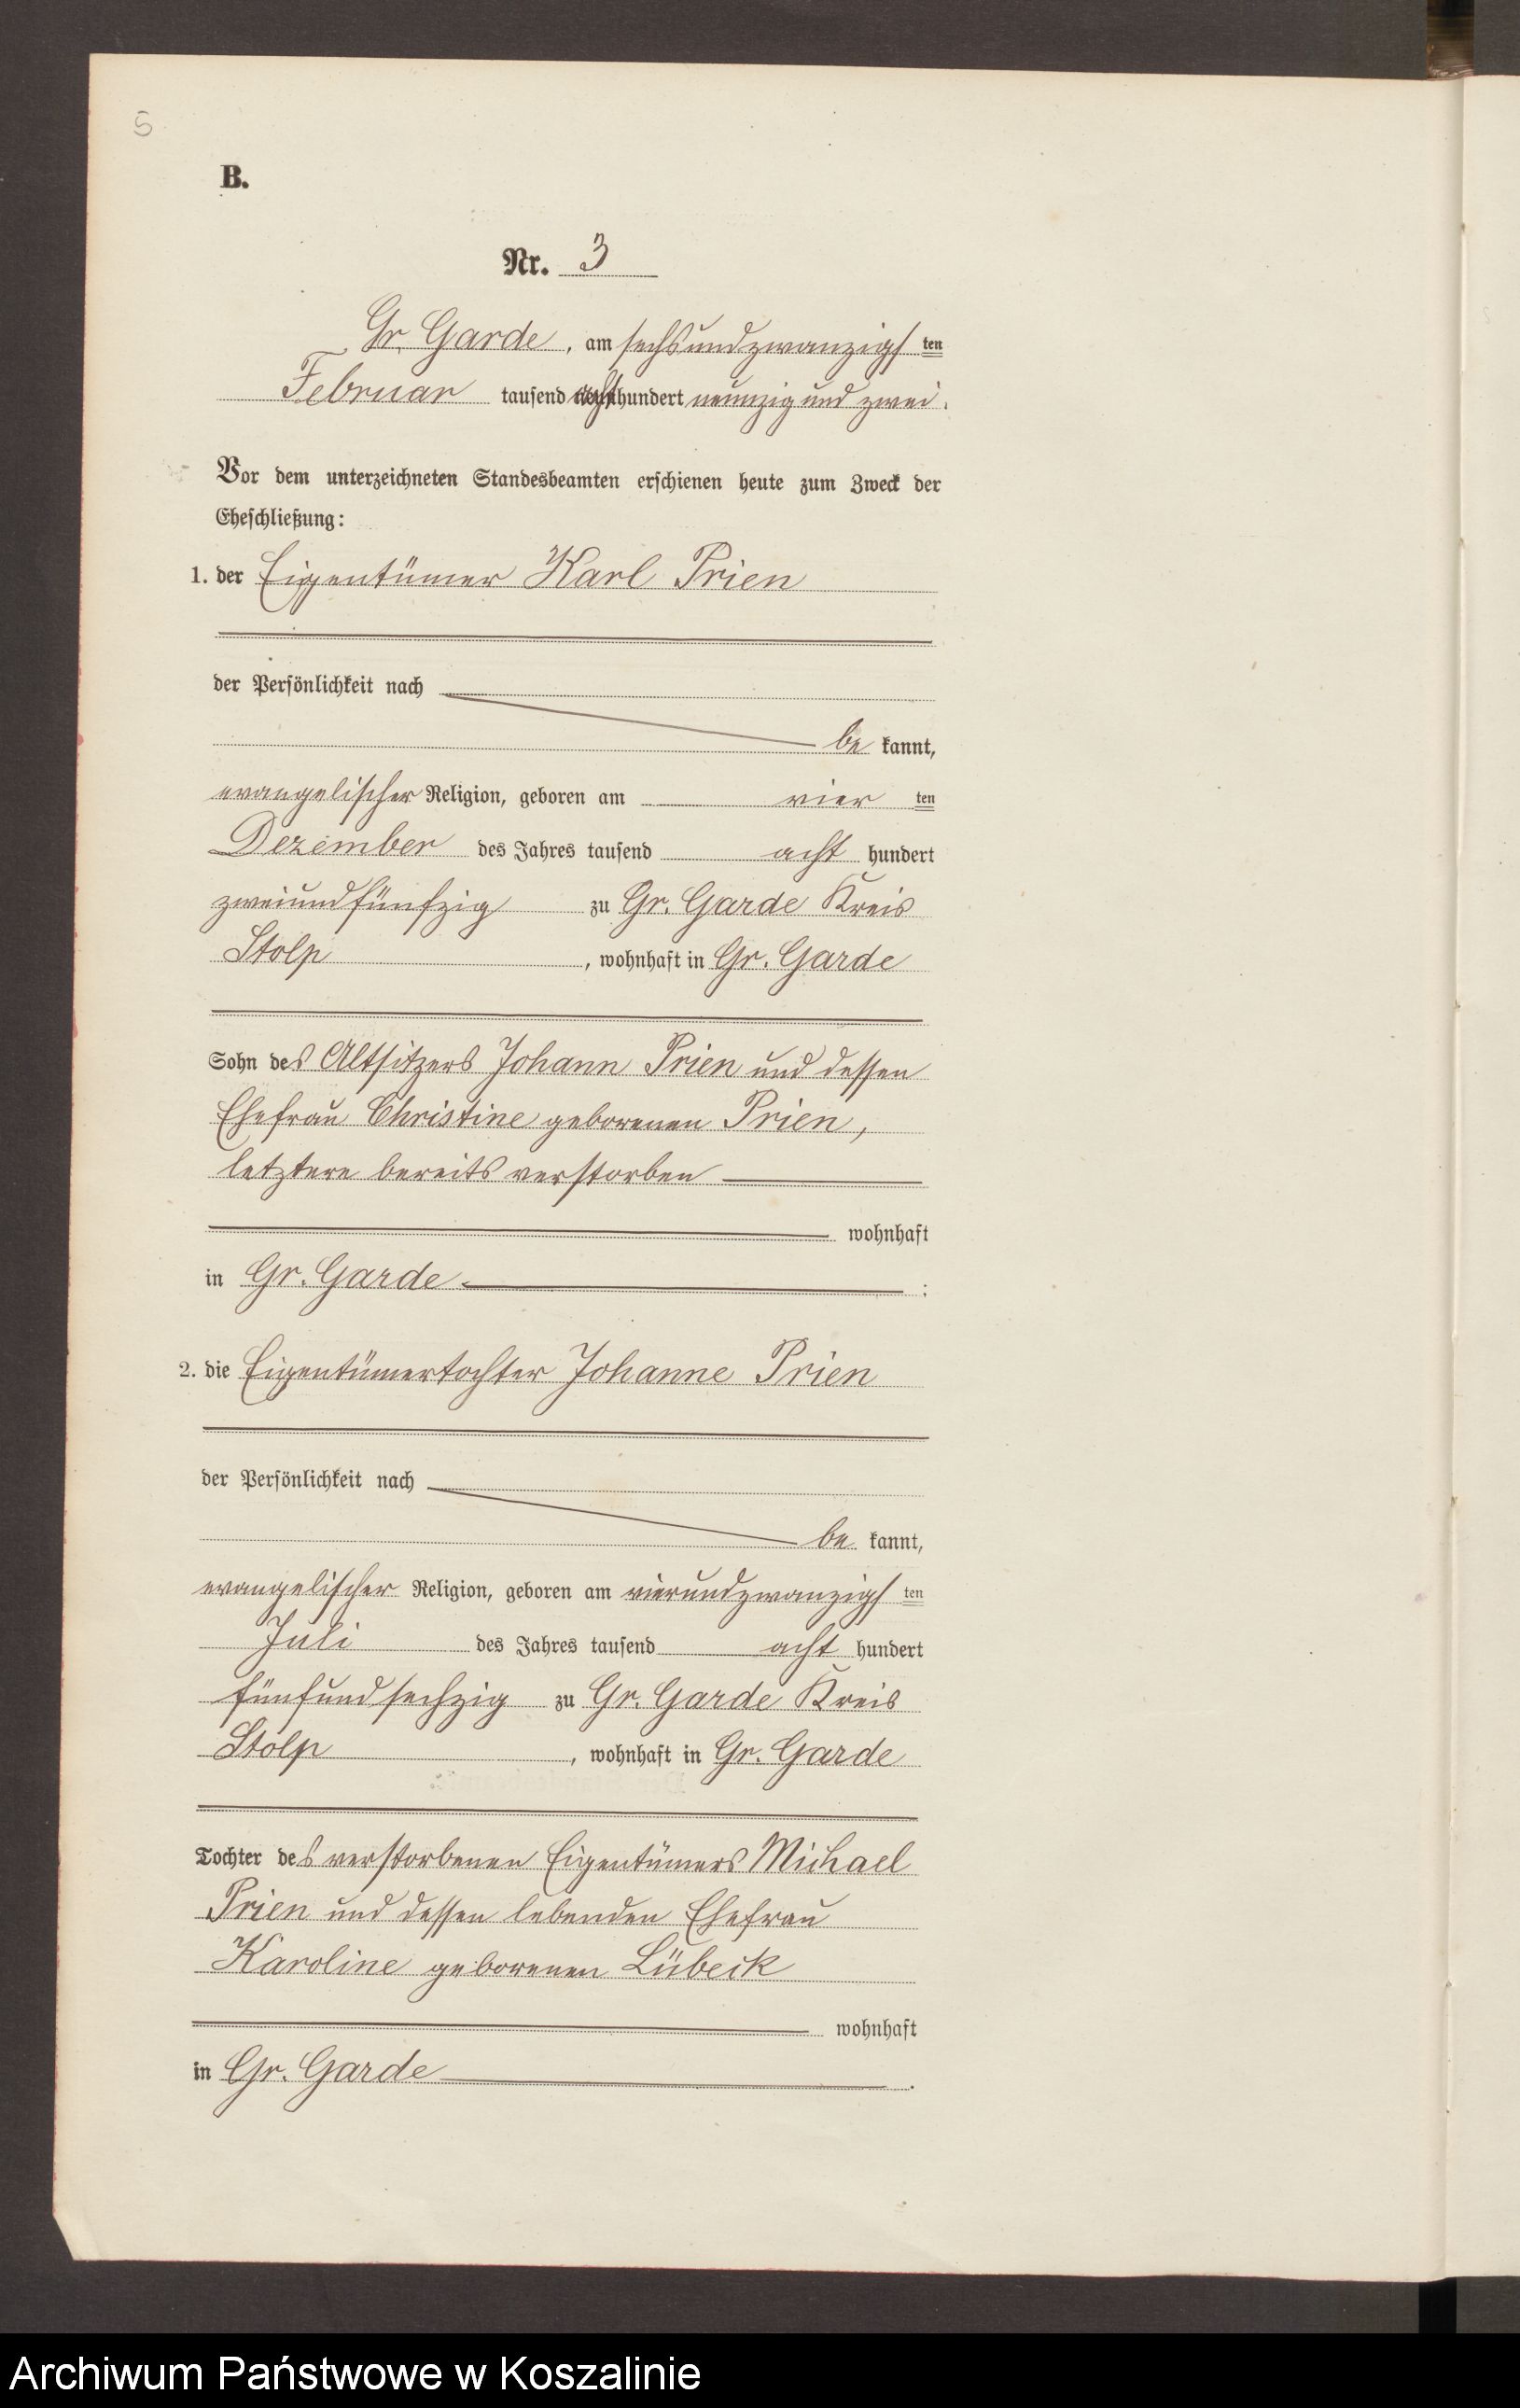 5
B.
Nr. 3
Gr. Garde, am sechsundzwanzigsten
Februar tausend achthundert neunzig und zwei.
Vor dem unterzeichneten Standesbeamten erschienen heute zum Zweck der
Eheschließung:
1. der Eigentümer Karl Prien
der Persönlichkeit nach
be kannt,
evangelischer Religion, geboren am vier ten
Dezember des Jahres tausend acht hundert
zweiundfünfzig zu Gr. Garde Kreis
Stolp, wohnhaft in Gr. Garde
Sohn des Altsitzers Johann Prien und dessen
Ehefrau Christine geborenen Prien,
letztere bereits verstorben
wohnhaft
in Gr. Garde :
2. die Eigentümertochter Johanne Prien
der Persönlichkeit nach
be kannt,
evangelischer Religion, geboren am vierundzwanzigsten
Juli des Jahres tausend acht hundert
fünfundsechzig zu Gr. Garde Kreis
Stolp, wohnhaft in Gr. Garde
Tochter des verstorbenen Eigentümers Michael
Prien und dessen lebenden Ehefrau
Karoline geborenen Lübeck
wohnhaft
in Gr. Garde .
Archiwum Państwowe w Koszalinie